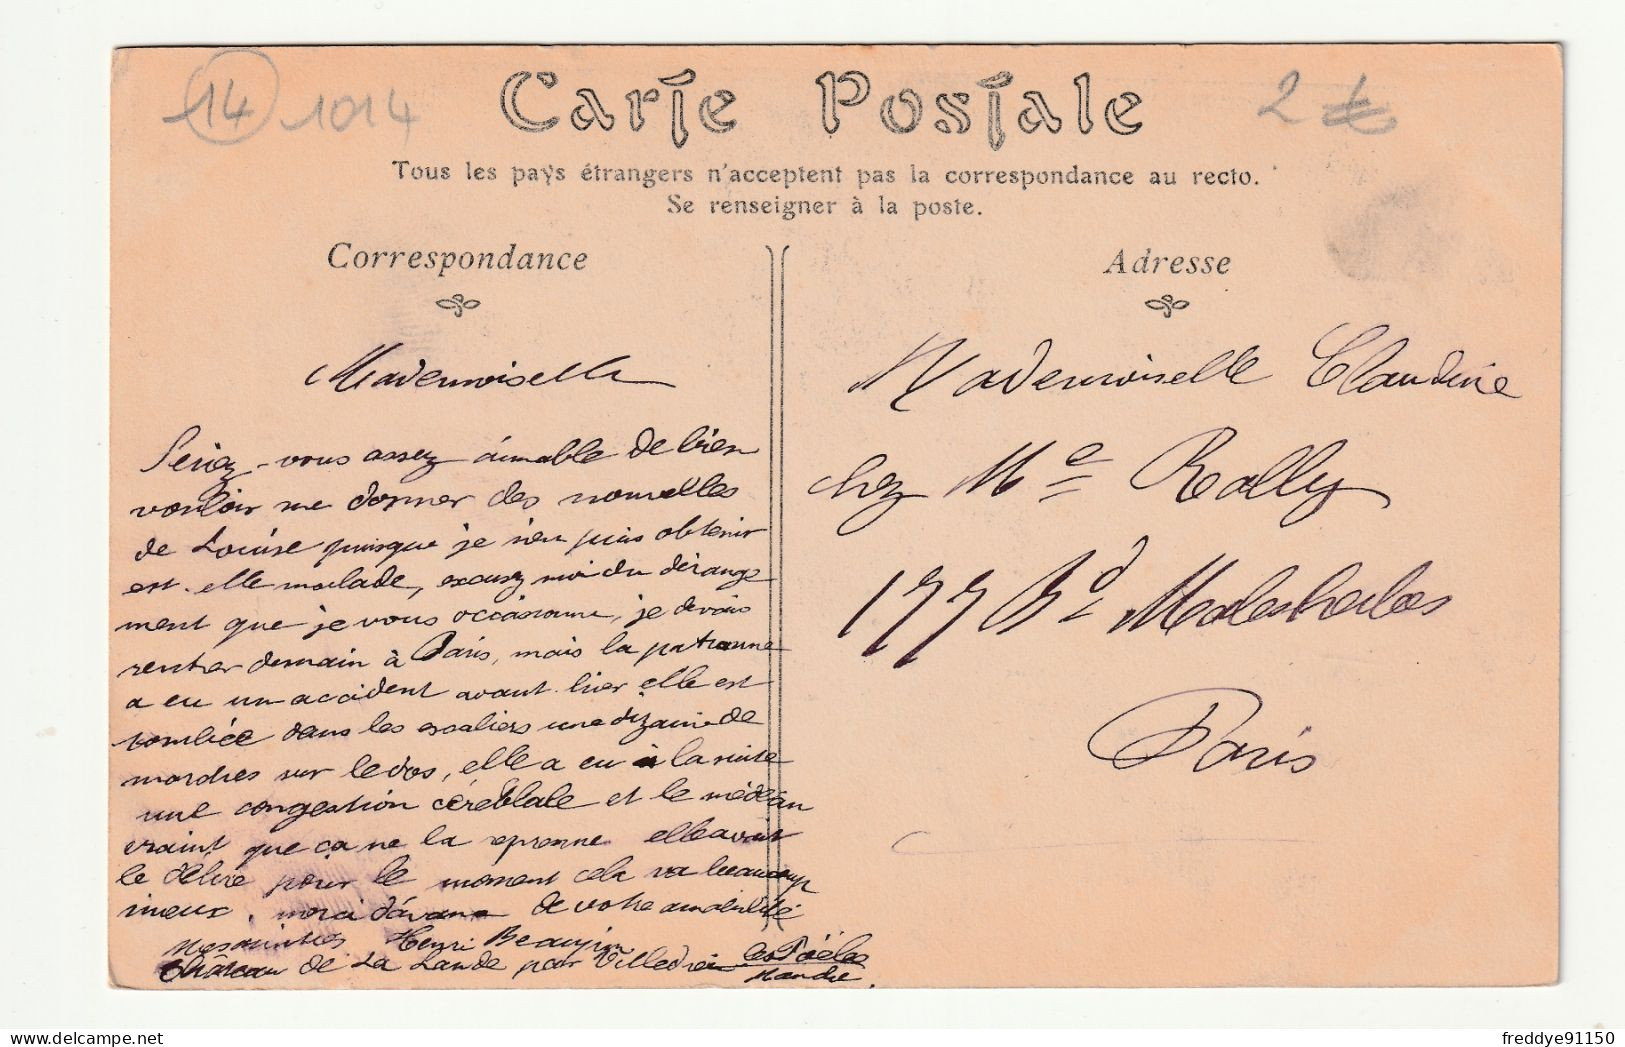 14 1014
2 €
Carte Postale
Tous les pays étrangers n'acceptent pas la correspondance au recto.
Se renseigner à la poste.
Correspondance
Mademoiselle
Seriez-vous assez aimable de bien
vouloir me donner des nouvelles
de Louise puisque je n'en puis obtenir
est-elle malade, excusez moi du dérange
ment que je vous occasionne, je devais
rentrer demain à Paris, mais la patronne
a eu un accident avant hier elle est
tombée dans les escaliers une dizaine de
marches sur le dos, elle a eu à la suite
une congestion céréblale et le médecin
craint que ça ne la reprenne elle avait
le délire pour le moment cela va beaucoup
mieux, merci d'avance de votre amabilité
Mes amitiés Henri Beaujin
Château de La Lande par les Poëles
Adresse
Mademoiselle Claudine
chez Me Rally
177 Bd Malesherbes
Paris
freddye91150